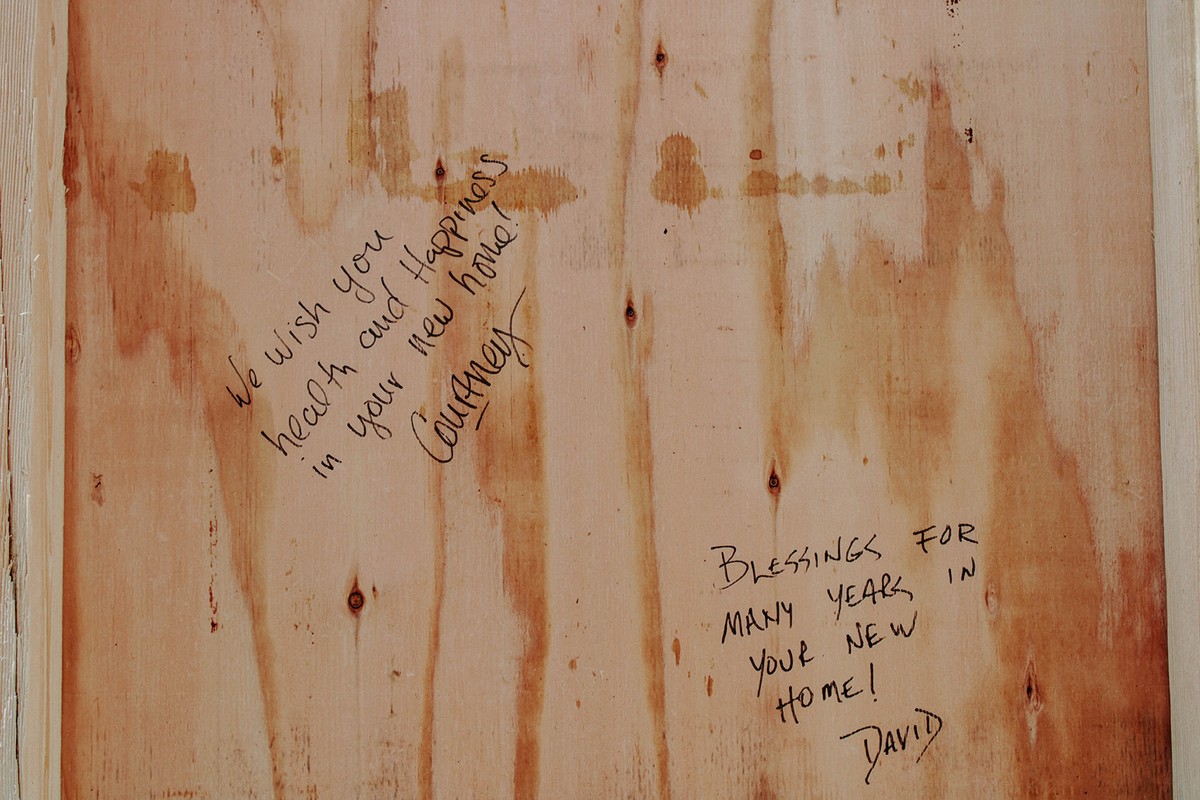 We Wish you
health and Happiness
in your new home!
Courtney
BLESSINGS FOR
MANY YEARS IN
YOUR NEW
HOME!
DAVID